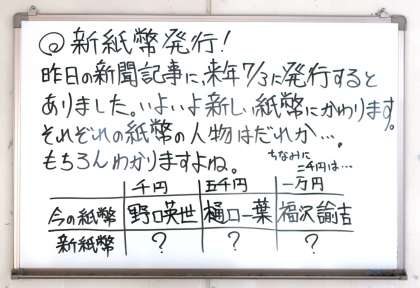 ◎新紙幣発行!
昨日の新聞記事に、来年7/3に発行すると
ありました。いよいよ新しい紙幣にかわります。
それぞれの紙幣の人物はだれか…。
もちろんわかりますよね。
ちなみに
二千円は…
千円 五千円 一万円
今の紙幣 野口英世 樋口一葉 福沢諭吉
新紙幣 ? ? ?